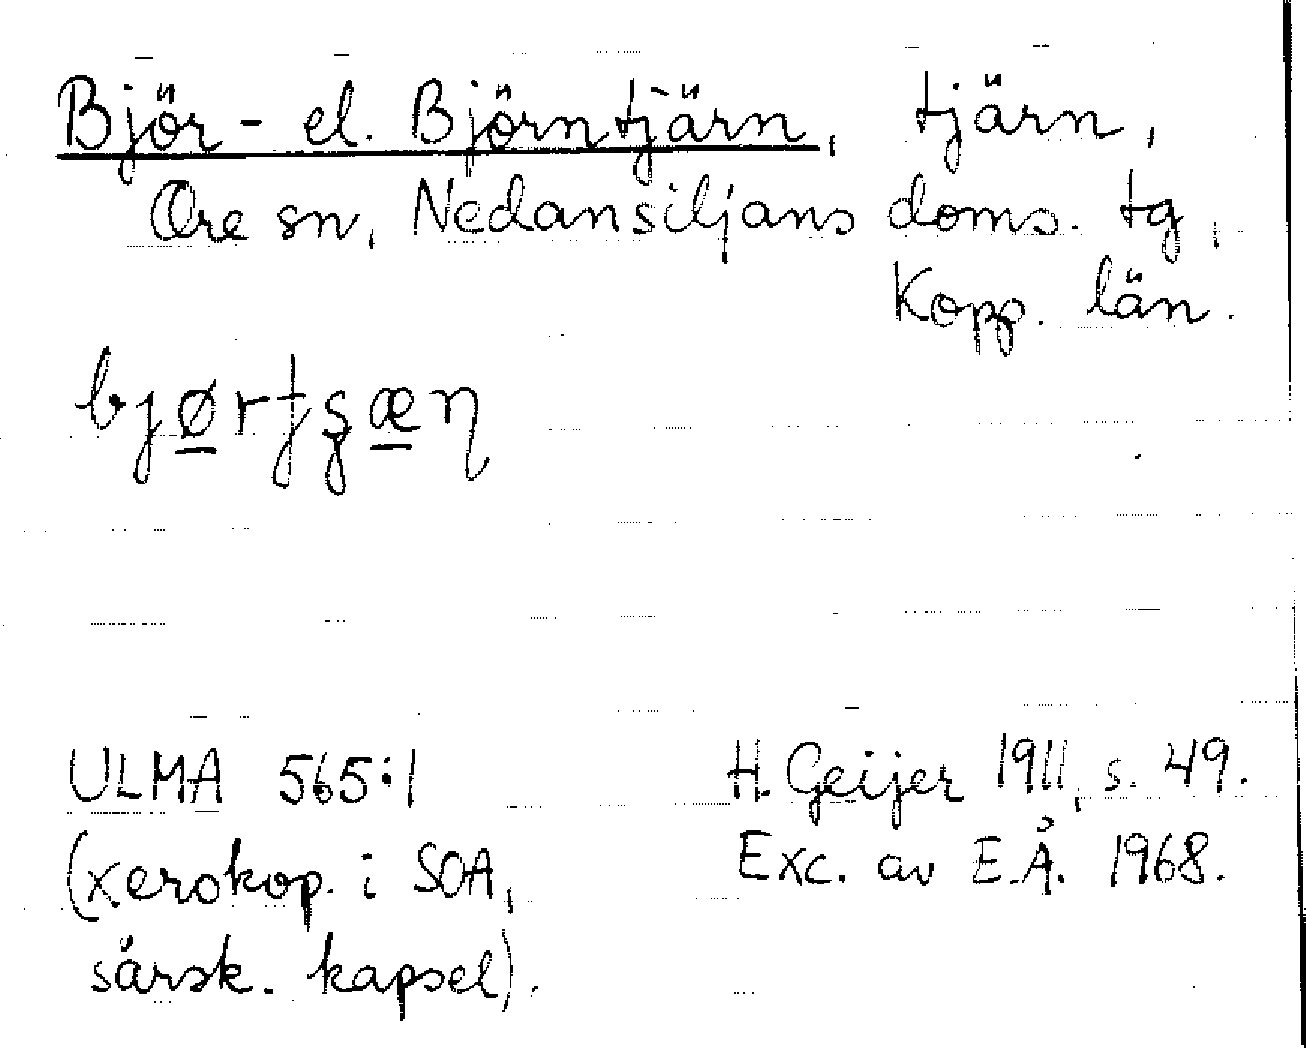 Björ- el. Björntjärn, tjärn,
Ore sn, Nedansiljans doms. tg,
Kopp. län.
ULMA 565:1
(xerokop. i SOA,
särsk. kapsel).
H. Geijer 1911, s. 49.
Exc. av E.Å. 1968.